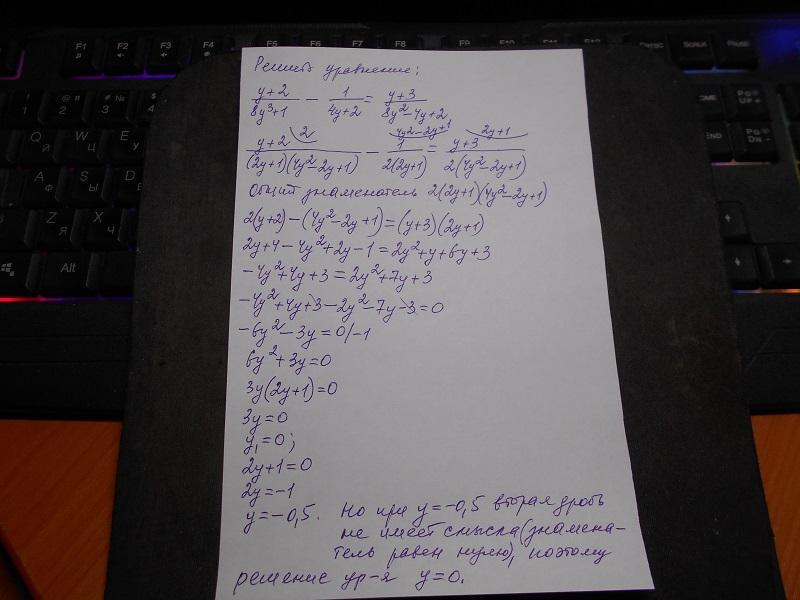 Решить уравнение:
(y+2)/(8y³+1) - 1/(4y+2) = (y+3)/(8y²-4y+2)
2 4y²-2y+1 2y+1
(y+2)/((2y+1)(4y²-2y+1)) - 1/(2(2y+1)) = (y+3)/(2(4y²-2y+1))
Общий знаменатель 2(2y+1)(4y²-2y+1)
2(y+2)-(4y²-2y+1)=(y+3)(2y+1)
2y+4-4y²+2y-1=2y²+y+6y+3
-4y²+4y+3=2y²+7y+3
-4y²+4y+3-2y²-7y-3=0
-6y²-3y=0/-1
6y²+3y=0
3y(2y+1)=0
3y=0
y₁=0;
2y+1=0
2y=-1
y=-0,5. Но при y=-0,5 вторая дробь
не имеет смысла (знамена-
тель равен нулю), поэтому
решение ур-я y=0.